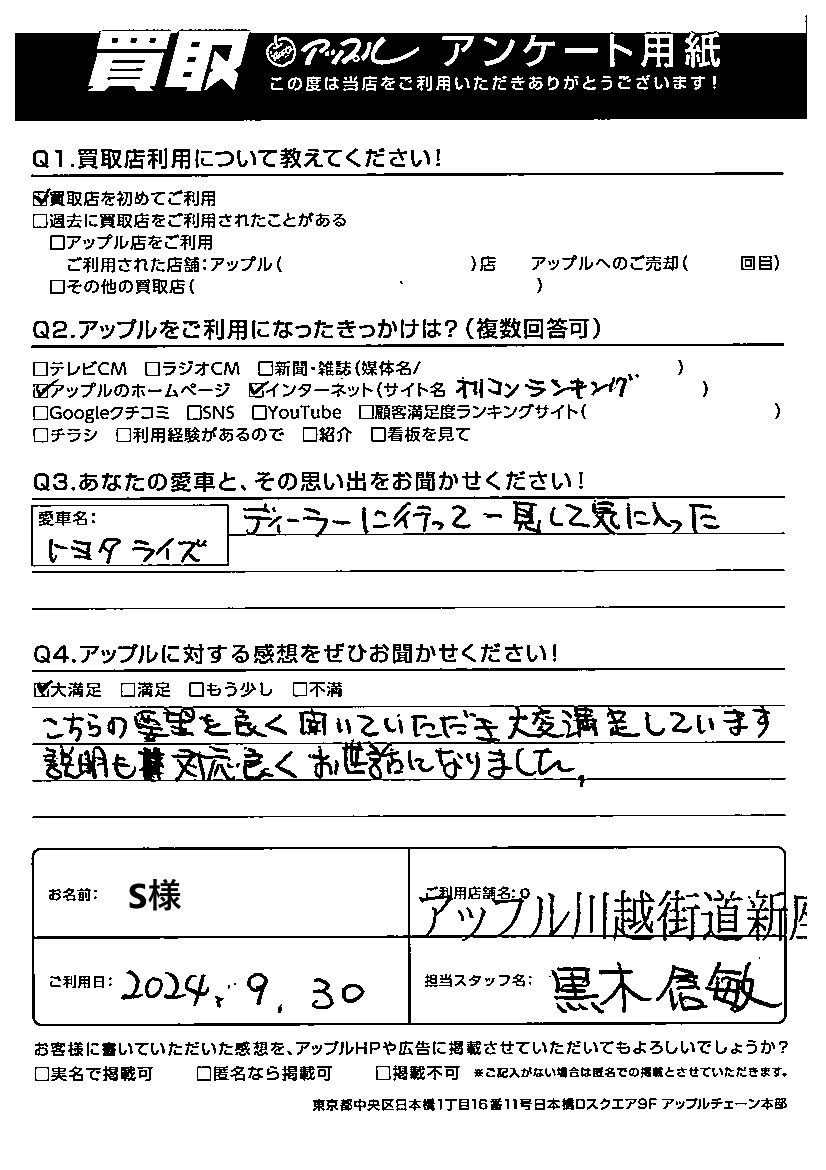 買取 アップル アンケート用紙
この度は当店をご利用いただきありがとうございます!
Q1.買取店利用について教えてください!
☑買取店を初めてご利用
□過去に買取店をご利用されたことがある
□アップル店をご利用
ご利用された店舗:アップル( )店 アップルへのご売却( 回目)
□その他の買取店( )
Q2.アップルをご利用になったきっかけは?(複数回答可)
□テレビCM □ラジオCM □新聞・雑誌(媒体名/ )
☑アップルのホームページ ☑インターネット(サイト名 オリコンランキング )
□Googleクチコミ □SNS □YouTube □顧客満足度ランキングサイト( )
□チラシ □利用経験があるので □紹介 □看板を見て
Q3.あなたの愛車と、その思い出をお聞かせください!
愛車名: ディーラーに行って一見して気に入った
トヨタ ライズ
Q4.アップルに対する感想をぜひお聞かせください!
☑大満足 □満足 □もう少し □不満
こちらの要望を良く聞いていただき大変満足しています
説明も対応良くお世話になりました。
お名前: S様 ご利用店舗名:
アップル川越街道新座
ご利用日: 2024. 9. 30 担当スタッフ名: 黒木信敏
お客様に書いていただいた感想を、アップルHPや広告に掲載させていただいてもよろしいでしょうか?
□実名で掲載可 □匿名なら掲載可 □掲載不可 ※ご記入がない場合は匿名での掲載とさせていただきます。
東京都中央区日本橋1丁目16番11号日本橋Dスクエア9F アップルチェーン本部